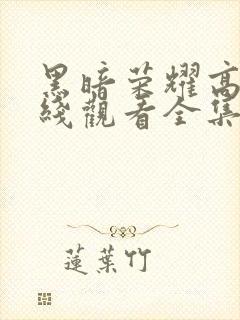 黑暗荣耀高
綫觀看全集
蓮葉竹